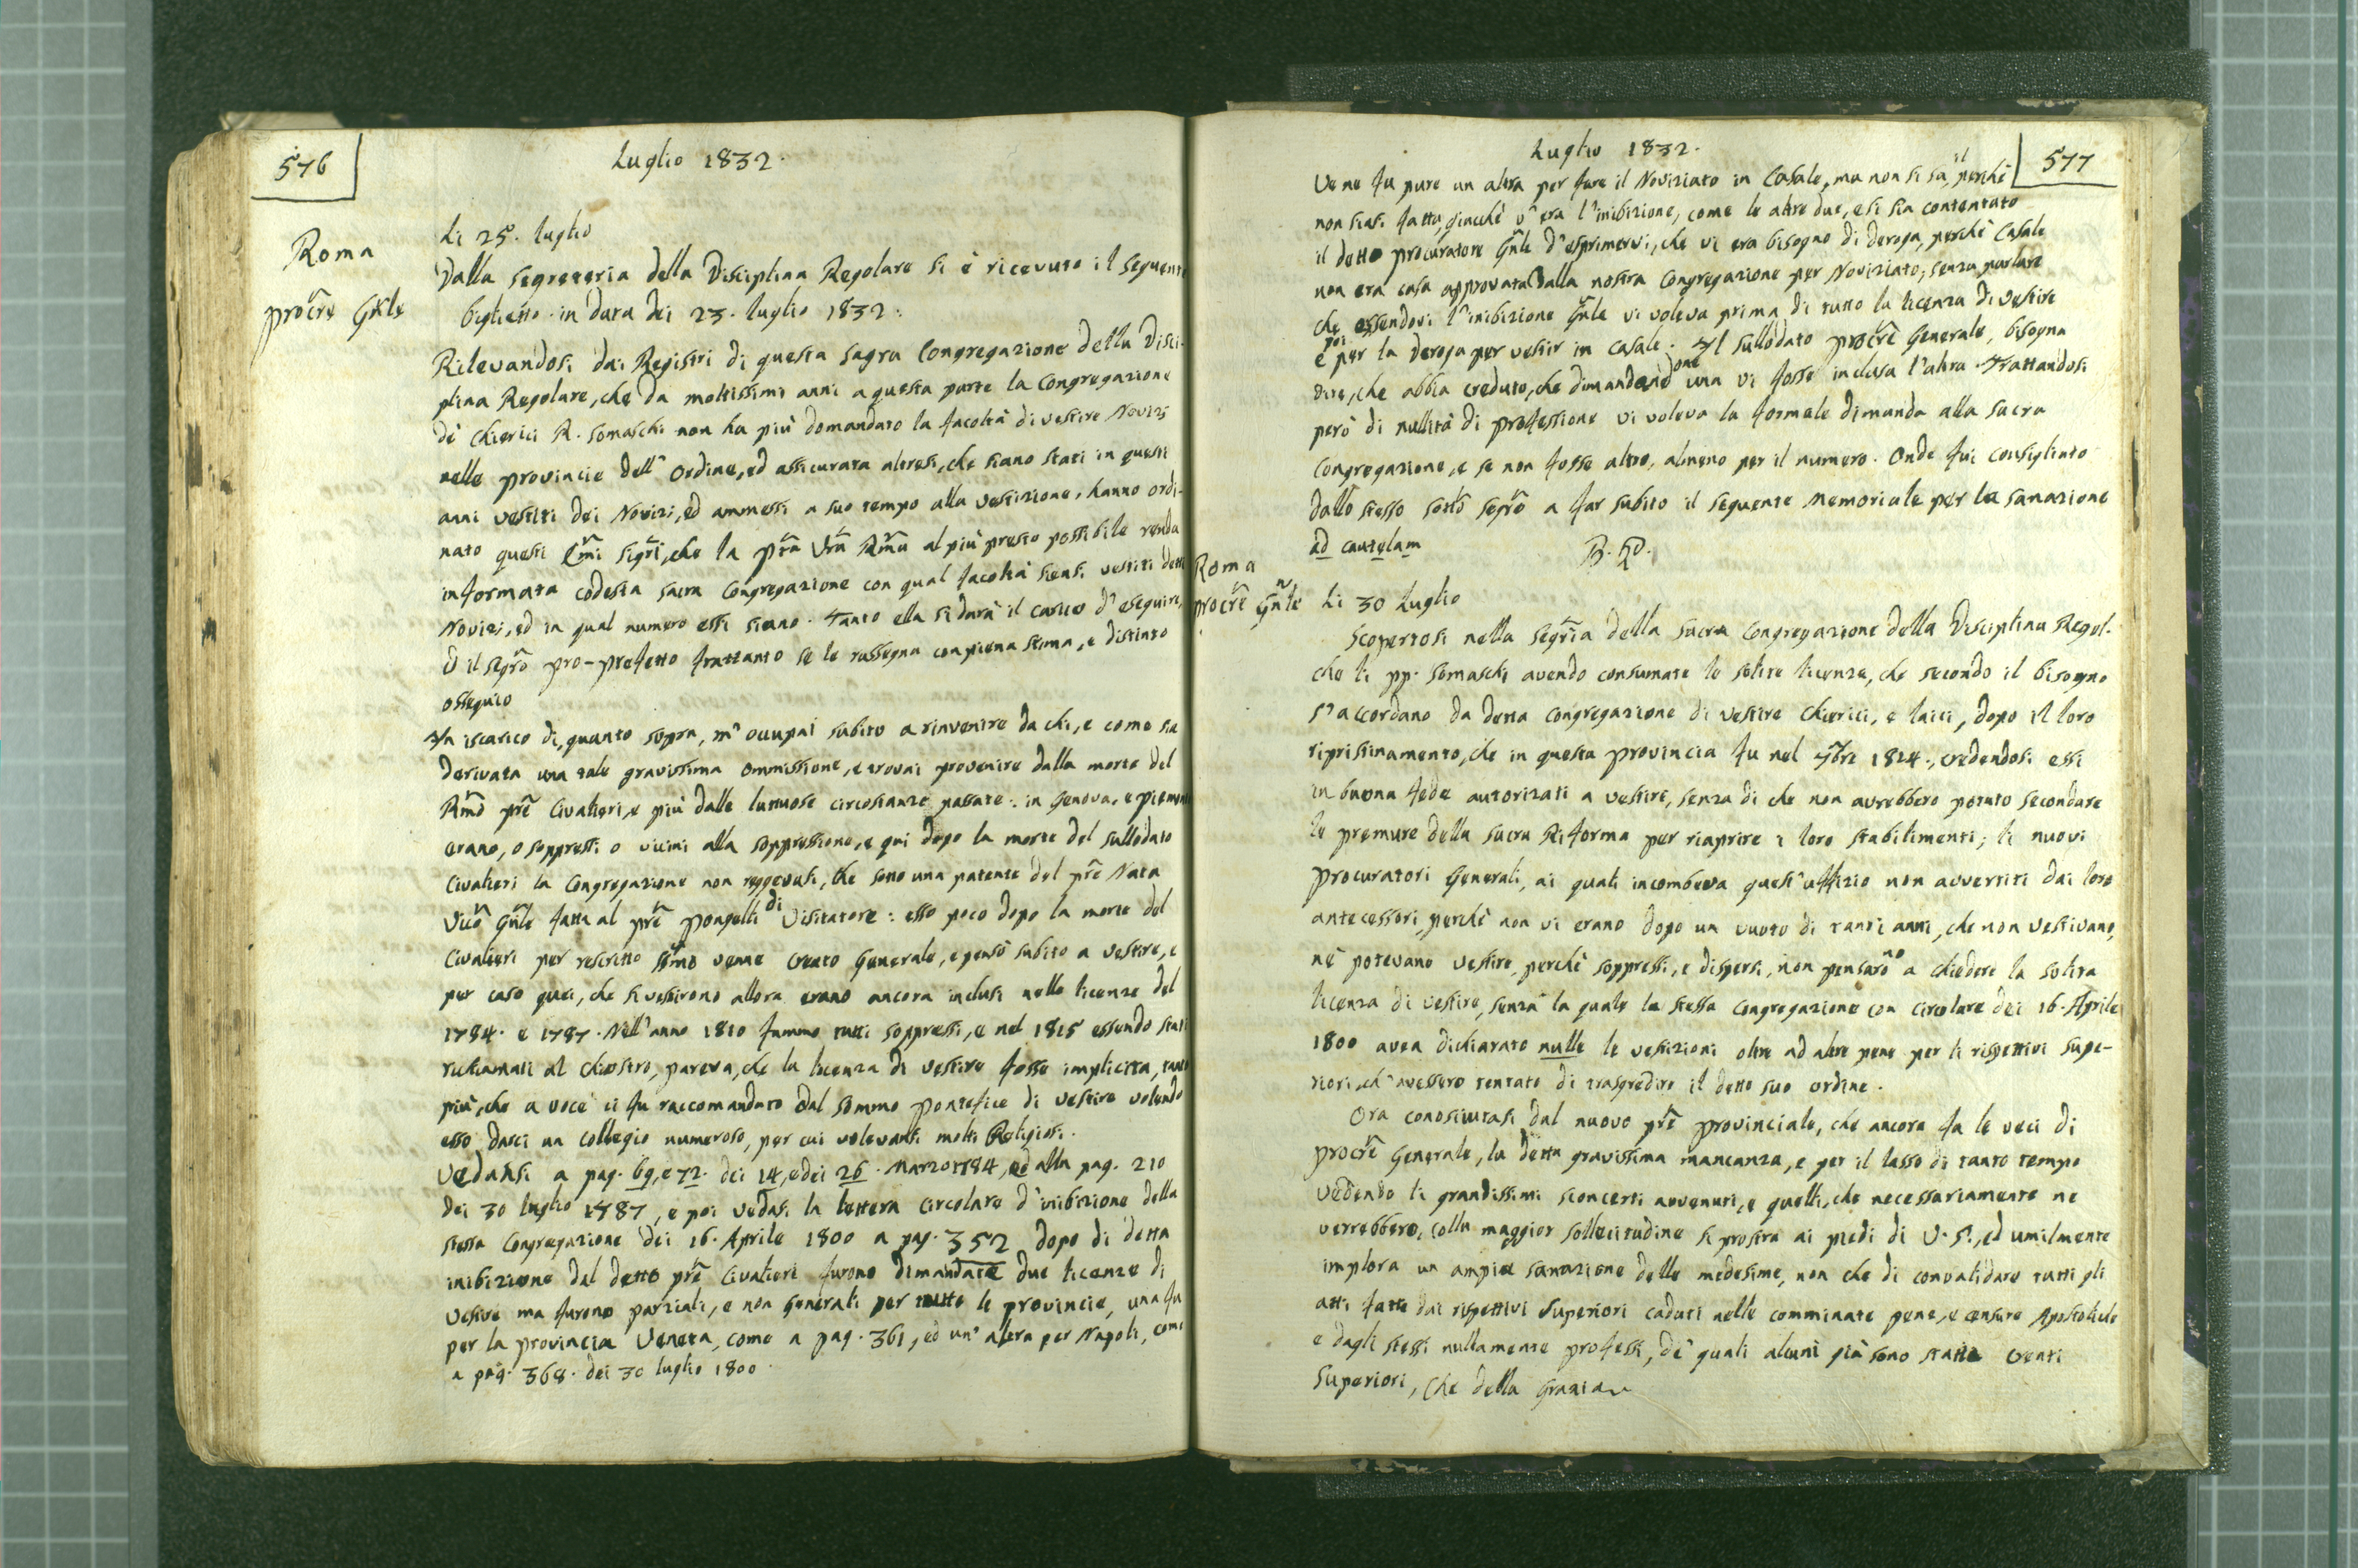 576
Luglio 1832.
Roma
procre Gnle
Li 25. luglio
Dalla segreteria della Disciplina Regolare si è ricevuto il seguente
biglietto in data dei 23. luglio 1832:
Rilevandosi dai Registri di questa sagra Congregazione della Disci-
plina Regolare, che da moltissimi anni a questa parte la Congregazione
de' Chierici R. Somaschi non ha più domandato la facoltà di vestire Novizi
nelle provincie dell'Ordine, ed assicurata altresì, che siano stati in questi
anni vestiti dei Novizi, ed ammessi a suo tempo alla vestizione, hanno ordi-
nato questi Emi sigri, che la pra Vra Rma al più presto possibile renda
informata codesta sacra Congregazione con qual facoltà siensi vestiti detti
Novizi, ed in qual numero essi siano. Tanto ella si darà il carico d'eseguire,
ed il segro pro-prefetto frattanto se le rassegna con piena stima, e distinto
ossequio
In iscarico di, quanto sopra, m'occupai subito a rinvenire da chi, e come sia
derivata una tale gravissima ommissione, e trovai provenire dalla morte del
Rmo pre Civalieri, e più dalle luttuose circostanze passate: in Genova, e piemonte
erano, o soppressi o vicini alla soppressione, e qui dopo la morte del sullodato
Civalieri la Congregazione non reggevasi, che sotto una patente del pre Nata
Vico Gnle fatta al pre Pongelli di Visitatore: esso poco dopo la morte del
Civalieri per rescritto smo venne creato Generale, e pensò subito a vestire, e
per caso quei, che si vestirono allora erano ancora inclusi nelle licenze del
1784. e 1787. Nell'anno 1810 fummo tutti soppressi, e nel 1815 essendo stati
richiamati al chiostro, pareva, che la licenza di vestire fosse implicita, tanto
più, che a voce ci fu raccomandato dal sommo pontefice di vestire volendo
esso darci un collegio numeroso, per cui volevansi molti Religiosi.
Vedansi a pag. 69, e 72. dei 14, e dei 26. Marzo 1784, ed alla pag. 210
dei 30 luglio 1787, e poi vedasi la lettera circolare d'inibizione della
stessa Congregazione dei 16. Aprile 1800 a pag. 352 dopo di detta
inibizione dal detto pre Civalieri furono dimandate due licenze di
vestire ma furono parziali, e non generali per tutte le provincie, una fu
per la provincia Veneta, come a pag. 361, ed un'altra per Napoli, come
a pag. 368. dei 30 luglio 1800.
Luglio 1832.
577
Ve ne fu pure un altra per fare il Noviziato in Casale, ma non si sa, il perchè
non siasi fatta, giacchè v'era l'inibizione, come le altre due, e si sia contentato
il detto procuratore Gnle d'esprimervi, che vi era bisogno di deroga, perchè Casale
non era casa approvata dalla nostra Congregazione per Noviziato, senza parlare
che essendovi l'inibizione Gnle vi voleva prima di tutto la licenza di vestire
e poi per la deroga per vestir in Casale. Il sullodato procre Generale, bisogna
dire, che abbia creduto, che dimandandone una vi fosse inclusa l'altra. Trattandosi
però di nullità di professione vi voleva la formale dimanda alla sacra
Congregazione, e se non fosse altro, almeno per il numero. Onde fui consigliato
dallo stesso sotto segro a far subito il seguente memoriale per la sanazione
ad cautelam
B. P.
Roma
procre Gnle
Li 30 Luglio
Scopertosi nella segria della sacra Congregazione della Disciplina Regol.
che li pp. Somaschi avendo consumate le solite licenze, che secondo il bisogno
s'accordano da detta Congregazione di vestire Chierici, e laici, dopo il loro
ripristinamento, che in questa provincia fu nel 7bre 1814., credendosi essi
in buona fede autorizati a vestire, senza di che non avrebbero potuto secondare
le premure della sacra Riforma per riaprire i loro stabilimenti; li nuovi
procuratori Generali, ai quali incombeva quest'uffizio non avvertiti dai loro
antecessori, perchè non vi erano dopo un vuoto di tanti anni, che non vestivano,
nè potevano vestire, perchè soppressi, e dispersi, non pensarono a chiedere la solita
licenza di vestire, senza la quale la stessa Congregazione con circolare dei 16. Aprile
1800 avea dichiarato nulle le vestizioni oltre ad altre pene per li rispettivi supe-
riori, ch'avessero tentato di trasgredire il detto suo ordine.
Ora conosciutasi dal nuovo pre provinciale, che ancora fa le veci di
procre Generale, la detta gravissima mancanza, e per il lasso di tanto tempo
vedendo li grandissimi sconcerti avvenuti, e quelli, che necessariamente ne
verrebbero, colla maggior sollecitudine si prostra ai piedi di V. S., ed umilmente
implora un ampia sanazione delle medesime, non che di convalidare tutti gli
atti fatti dai rispettivi superiori caduti nelle comminate pene, e censure Apostoliche
e dagli stessi nullamente professi, de' quali alcuni già sono stati creati
Superiori, Che della Grazia